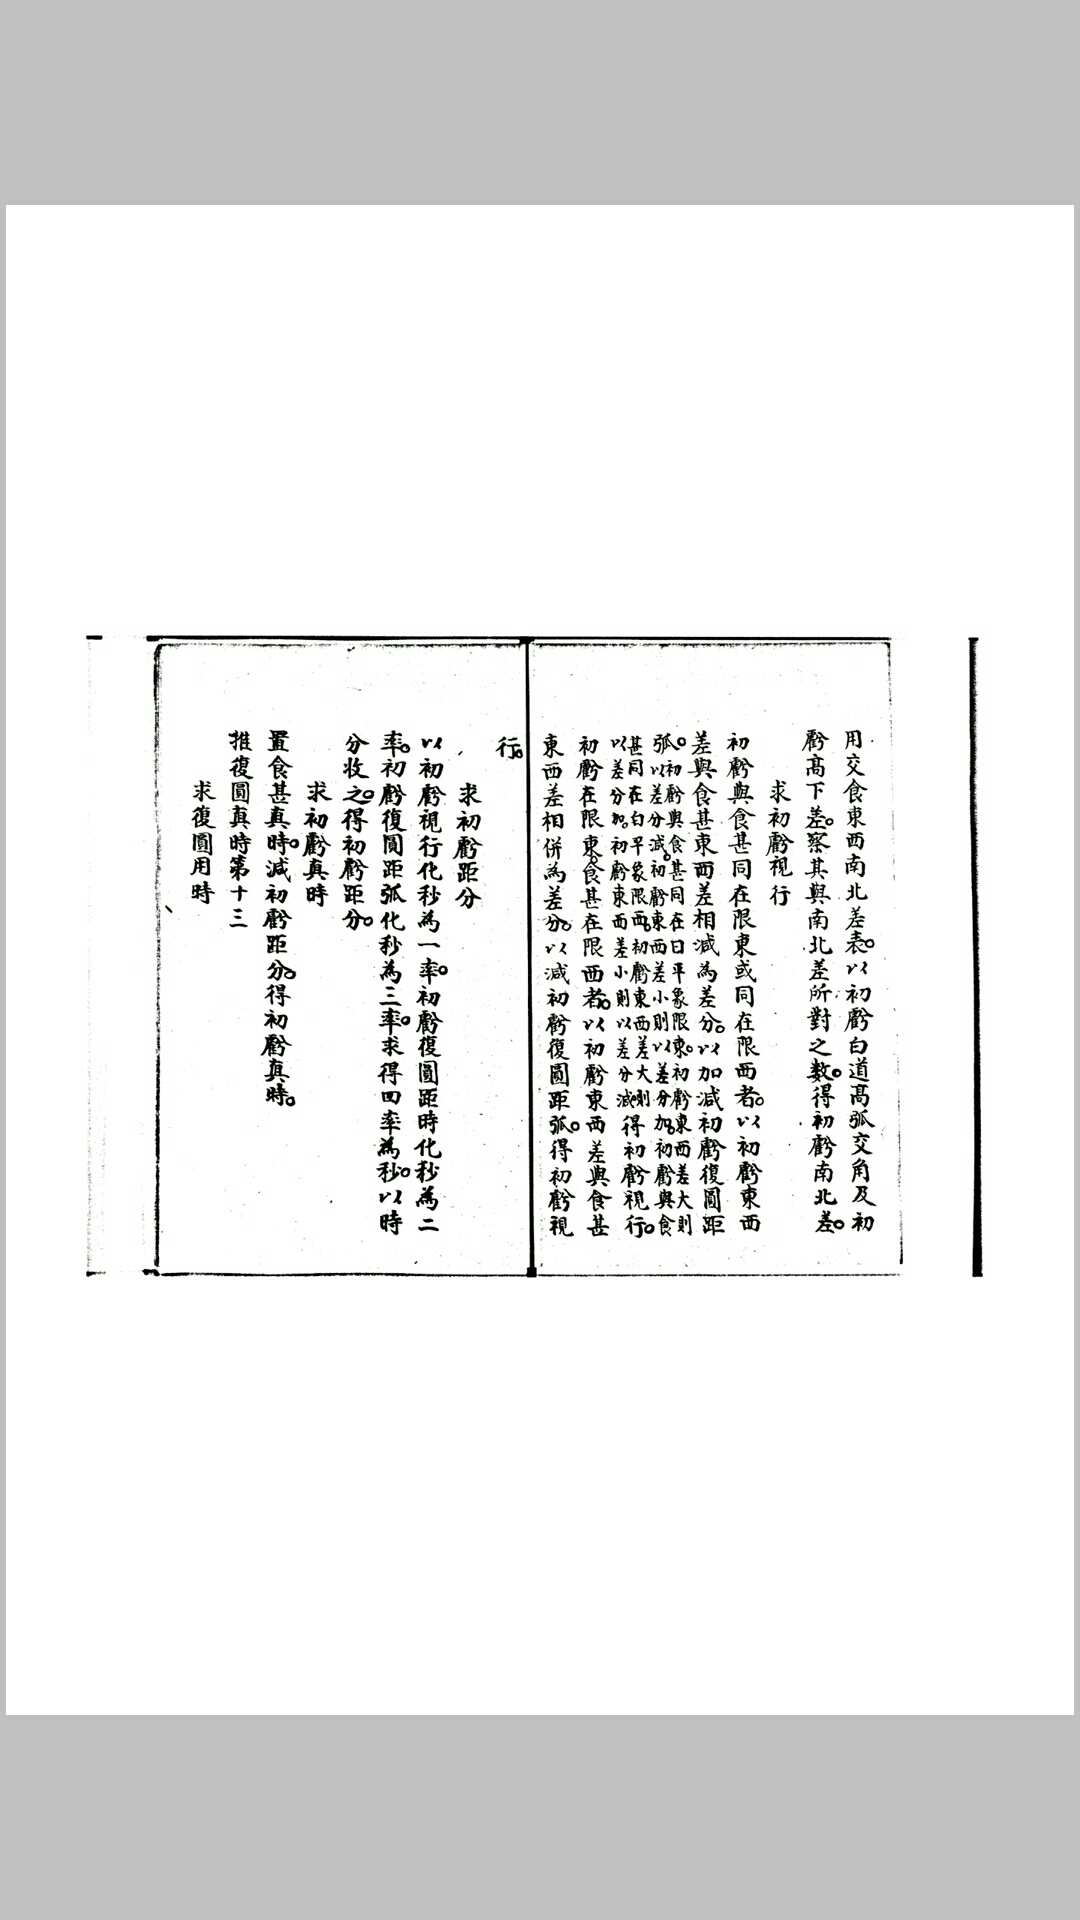 用交食東西南北差表。以初虧白道高弧交角及初
虧高下差。察其與南北差所對之數。得初虧南北差。
求初虧視行
初虧與食甚同在限東或同在限西者。以初虧東西
差與食甚東西差相減為差分。以加減初虧復圓距
弧。初虧與食甚同在白平象限東。初虧東西差大則
以差分減。初虧東西差小則以差分加。初虧與食
甚同在白平象限西。初虧東西差大則
以差分加。初虧東西差小則以差分減得初虧視行。
初虧在限東。食甚在限西者。以初虧東西差與食甚
東西差相併為差分。以減初虧復圓距弧。得初虧視
行。
求初虧距分
以初虧視行化秒為一率。初虧復圓距時化秒為二
率。初虧復圓距弧化秒為三率。求得四率為秒。以時
分收之。得初虧距分。
求初虧真時
置食甚真時。減初虧距分。得初虧真時。
推復圓真時第十三
求復圓用時